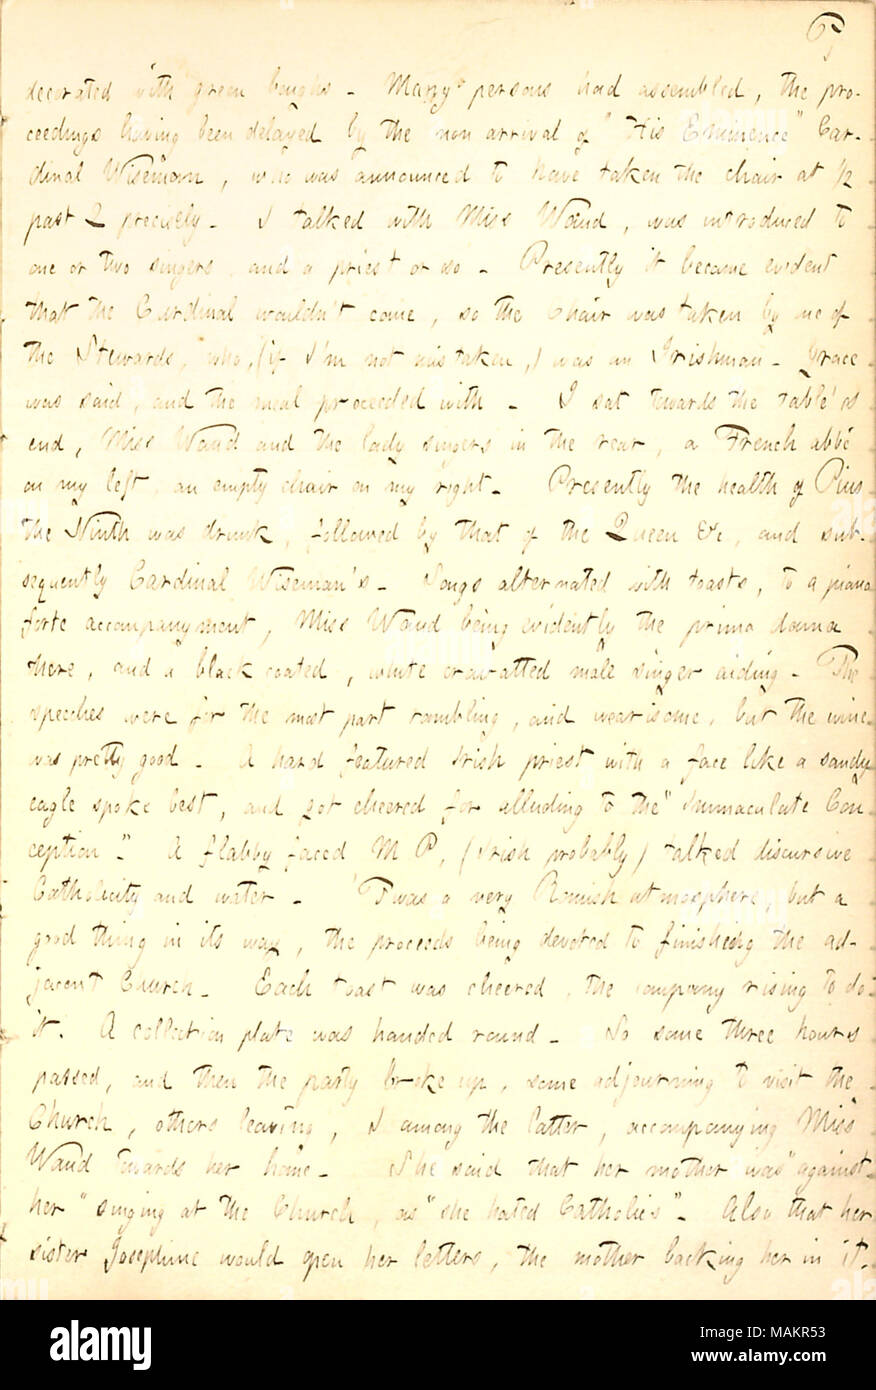 decorated with green boughs. Many persons had assembled, the pro-
ceedings having been delayed by the non arrival of "His Eminence" Car-
dinal Wiseman, who was announced to have taken the chair at 1/2
past 2 precisely. I talked with Miss Waud, was introduced to
one or two singers, and a priest or so. Presently it became evident
that the Cardinal wouldn't come, so the Chair was taken by one of
the Stewards, who, (if I'm not mistaken,) was an Irishman. Grace
was said, and the meal proceeded with. I sat towards the table's
end, Miss Waud and the lady singers in the rear, a French abbé
on my left, an empty chair on my right. Presently the health of Pius
the Ninth was drunk, followed by that of the Queen &c, and sub-
sequently Cardinal Wiseman's. Songs alternated with toasts, to a piano
forte accompanyment, Miss Waud being evidently the prima donna
there, and a black coated, white cravatted male singer aiding. The
speeches were for the most part rambling, and wearisome, but the wine
was pretty good. A hard featured Irish priest with a face like a sandy
eagle spoke best, and got cheered for alluding to the "Immaculate Con
ception." A flabby faced M P, (Irish probably) talked discursive
Catholicity and water. 'Twas a very Romish atmosphere, but a
good thing in its way, the proceeds being devoted to finishing the ad-
jacent Church. Each toast was cheered, the company rising to do
it. A collection plate was handed round. So some three hours
passed, and then the party broke up, some adjourning to visit the
Church, others leaving, I among the latter, accompanying Miss
Waud towards her home. She said that her mother was "against
her" singing at the Church, as "she hated Catholics". Also that her
sister Josephine would open her letters, the mother backing her in it.
alamy
Image ID: MAKR53
www.alamy.com